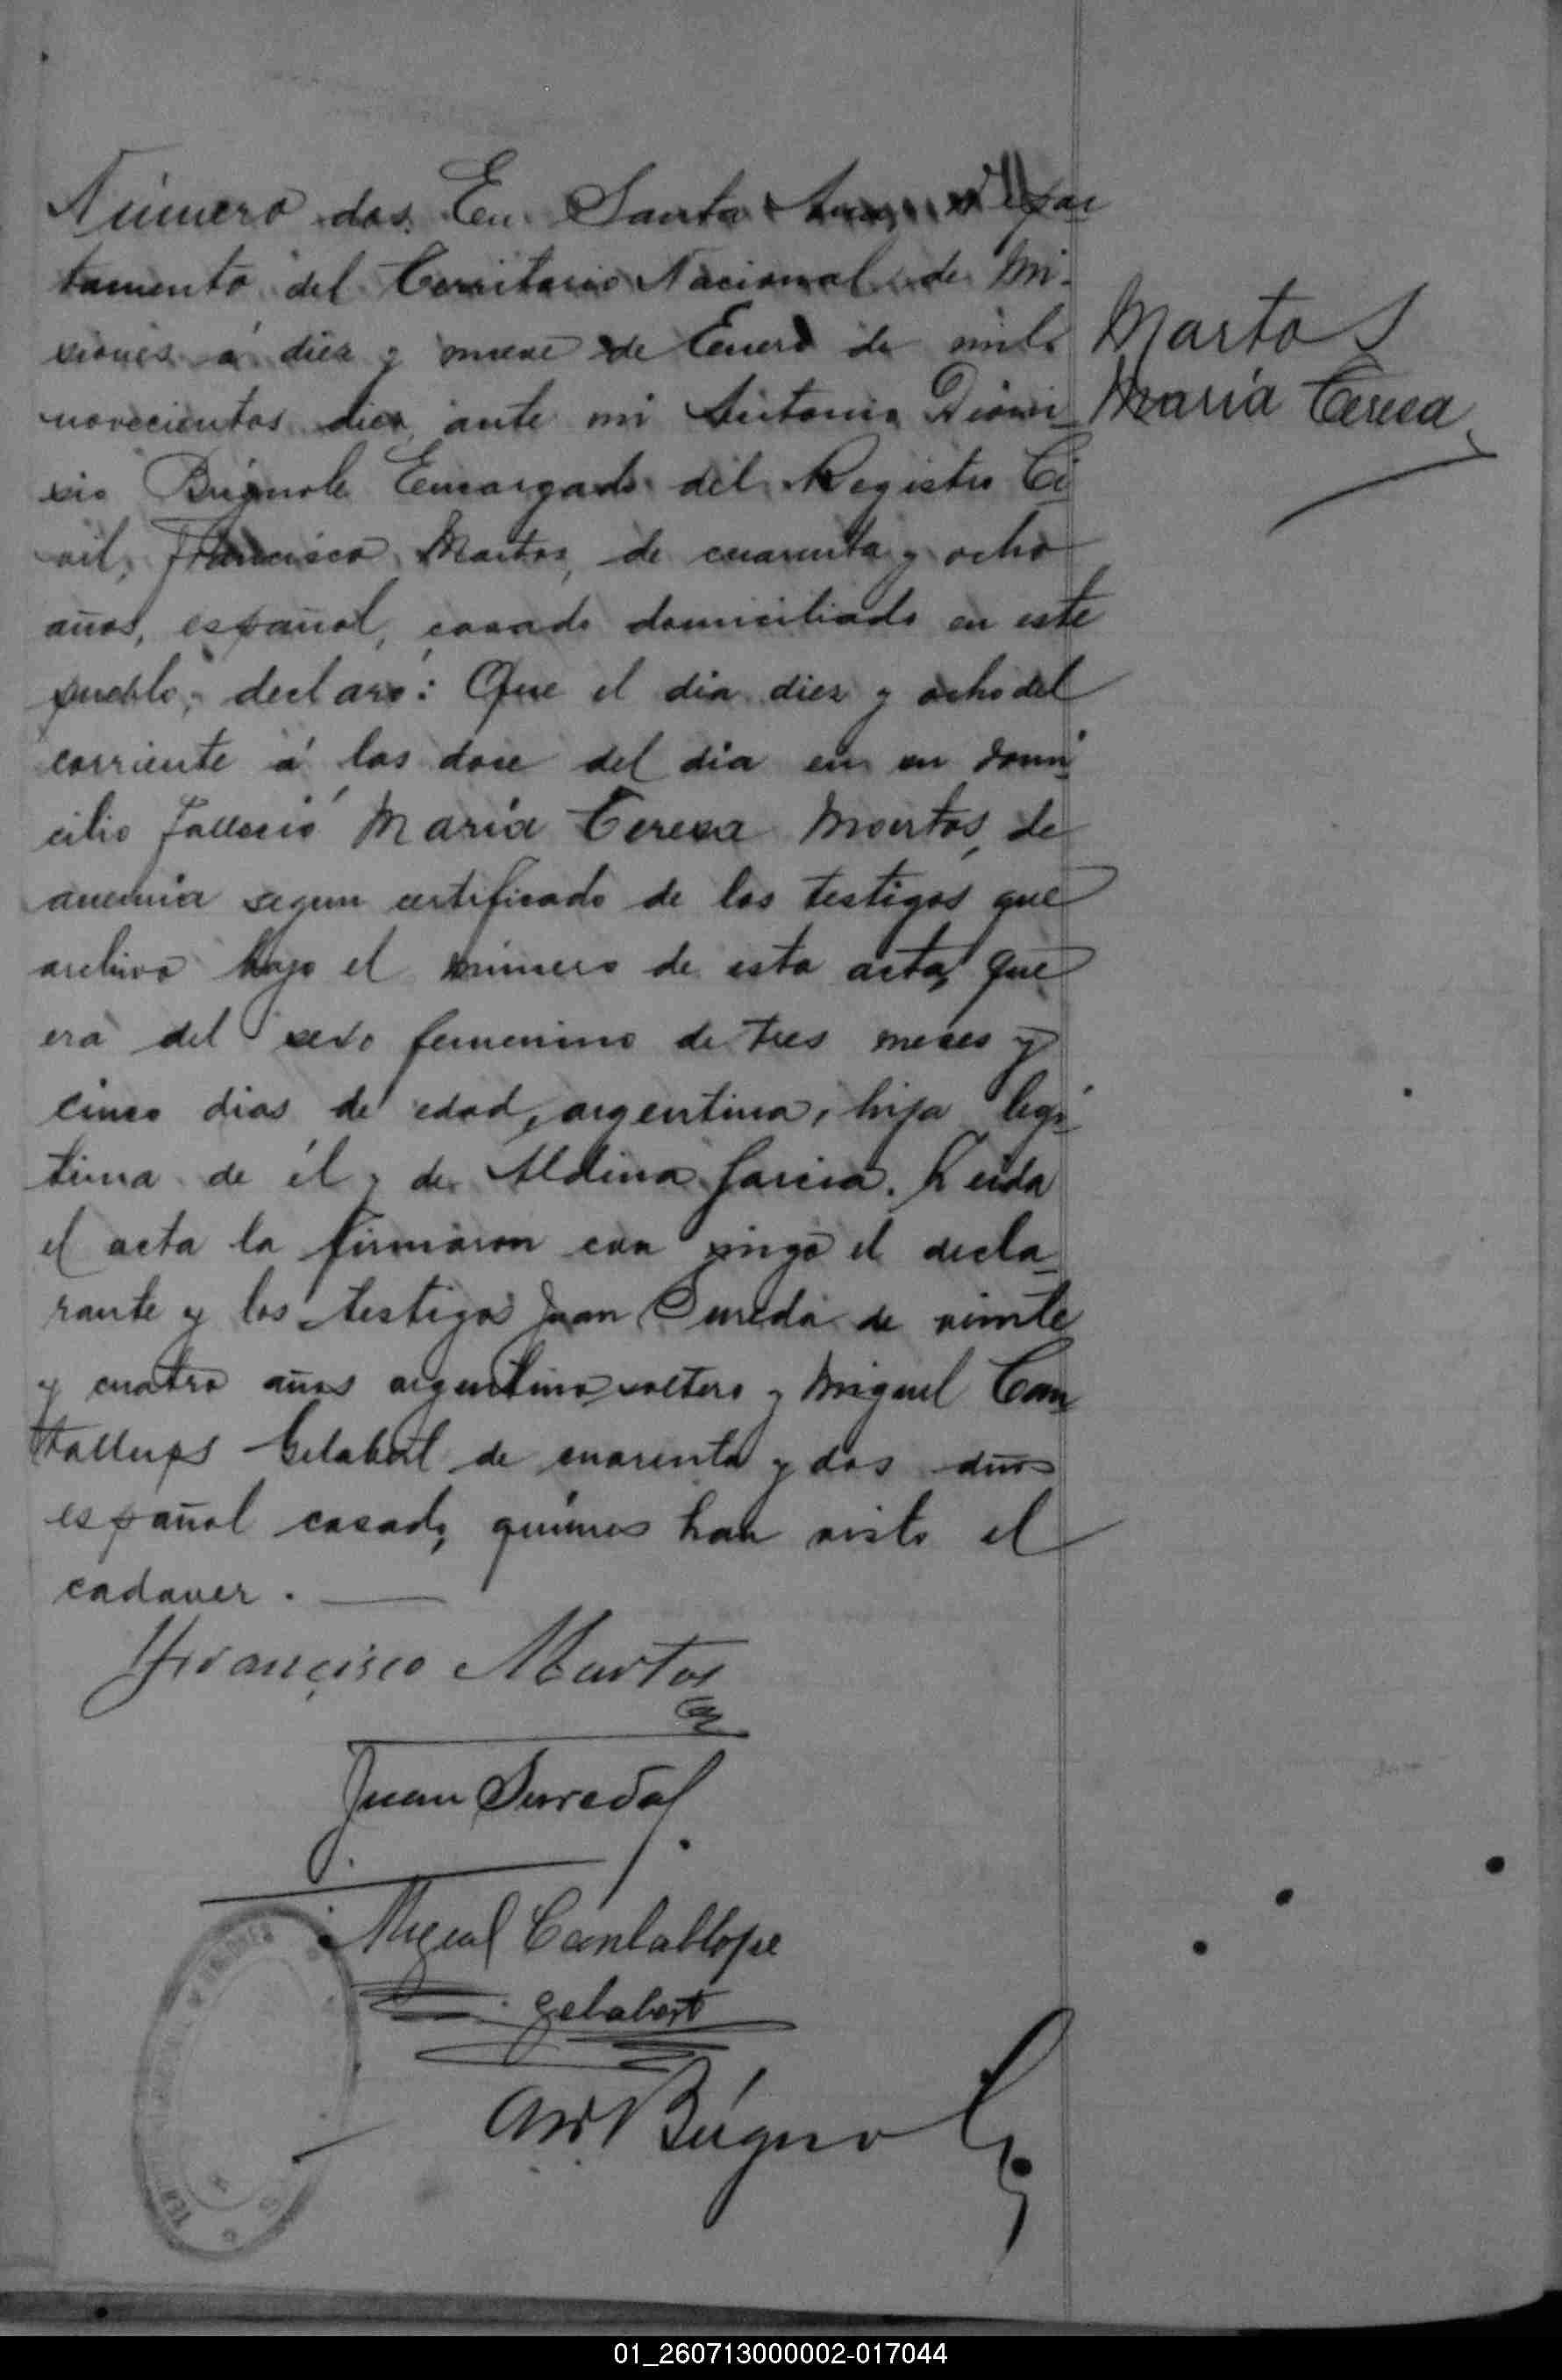 Número dos. En Santa Ana, depar
tamento del Territorio Nacional de Mi-
siones á diez y nueve de Enero de mil
novecientos diez ante mi Antonio Dioni-
sio Brignole Encargado del Registro Ci
vil, Francisco Martos, de cuarenta y ocho
años, español, casado domiciliado en este
pueblo, declaró: Que el dia diez y ocho del
corriente á las doce del dia en su domi
cilio falleció María Teresa Martos, de
anemia segun certificado de los testigos que
archivo bajo el número de esta acta, que
era del sexo femenino de tres meses y
cinco dias de edad, argentina, hija legí
tima de él y de Aldina Garcia. Leida
el acta la firmaron con migo el decla-
rante y los testigos Juan Sureda de veinte
y cuatro años argentino soltero y Miguel Can
tallops Gelabert de cuarenta y dos años
español casado, quienes han visto el
cadaver.
Martos
María Teresa
Francisco Martos
Juan Surreda
Miguel Cantallope
Gelabert
Brignole
01_260713000002-017044